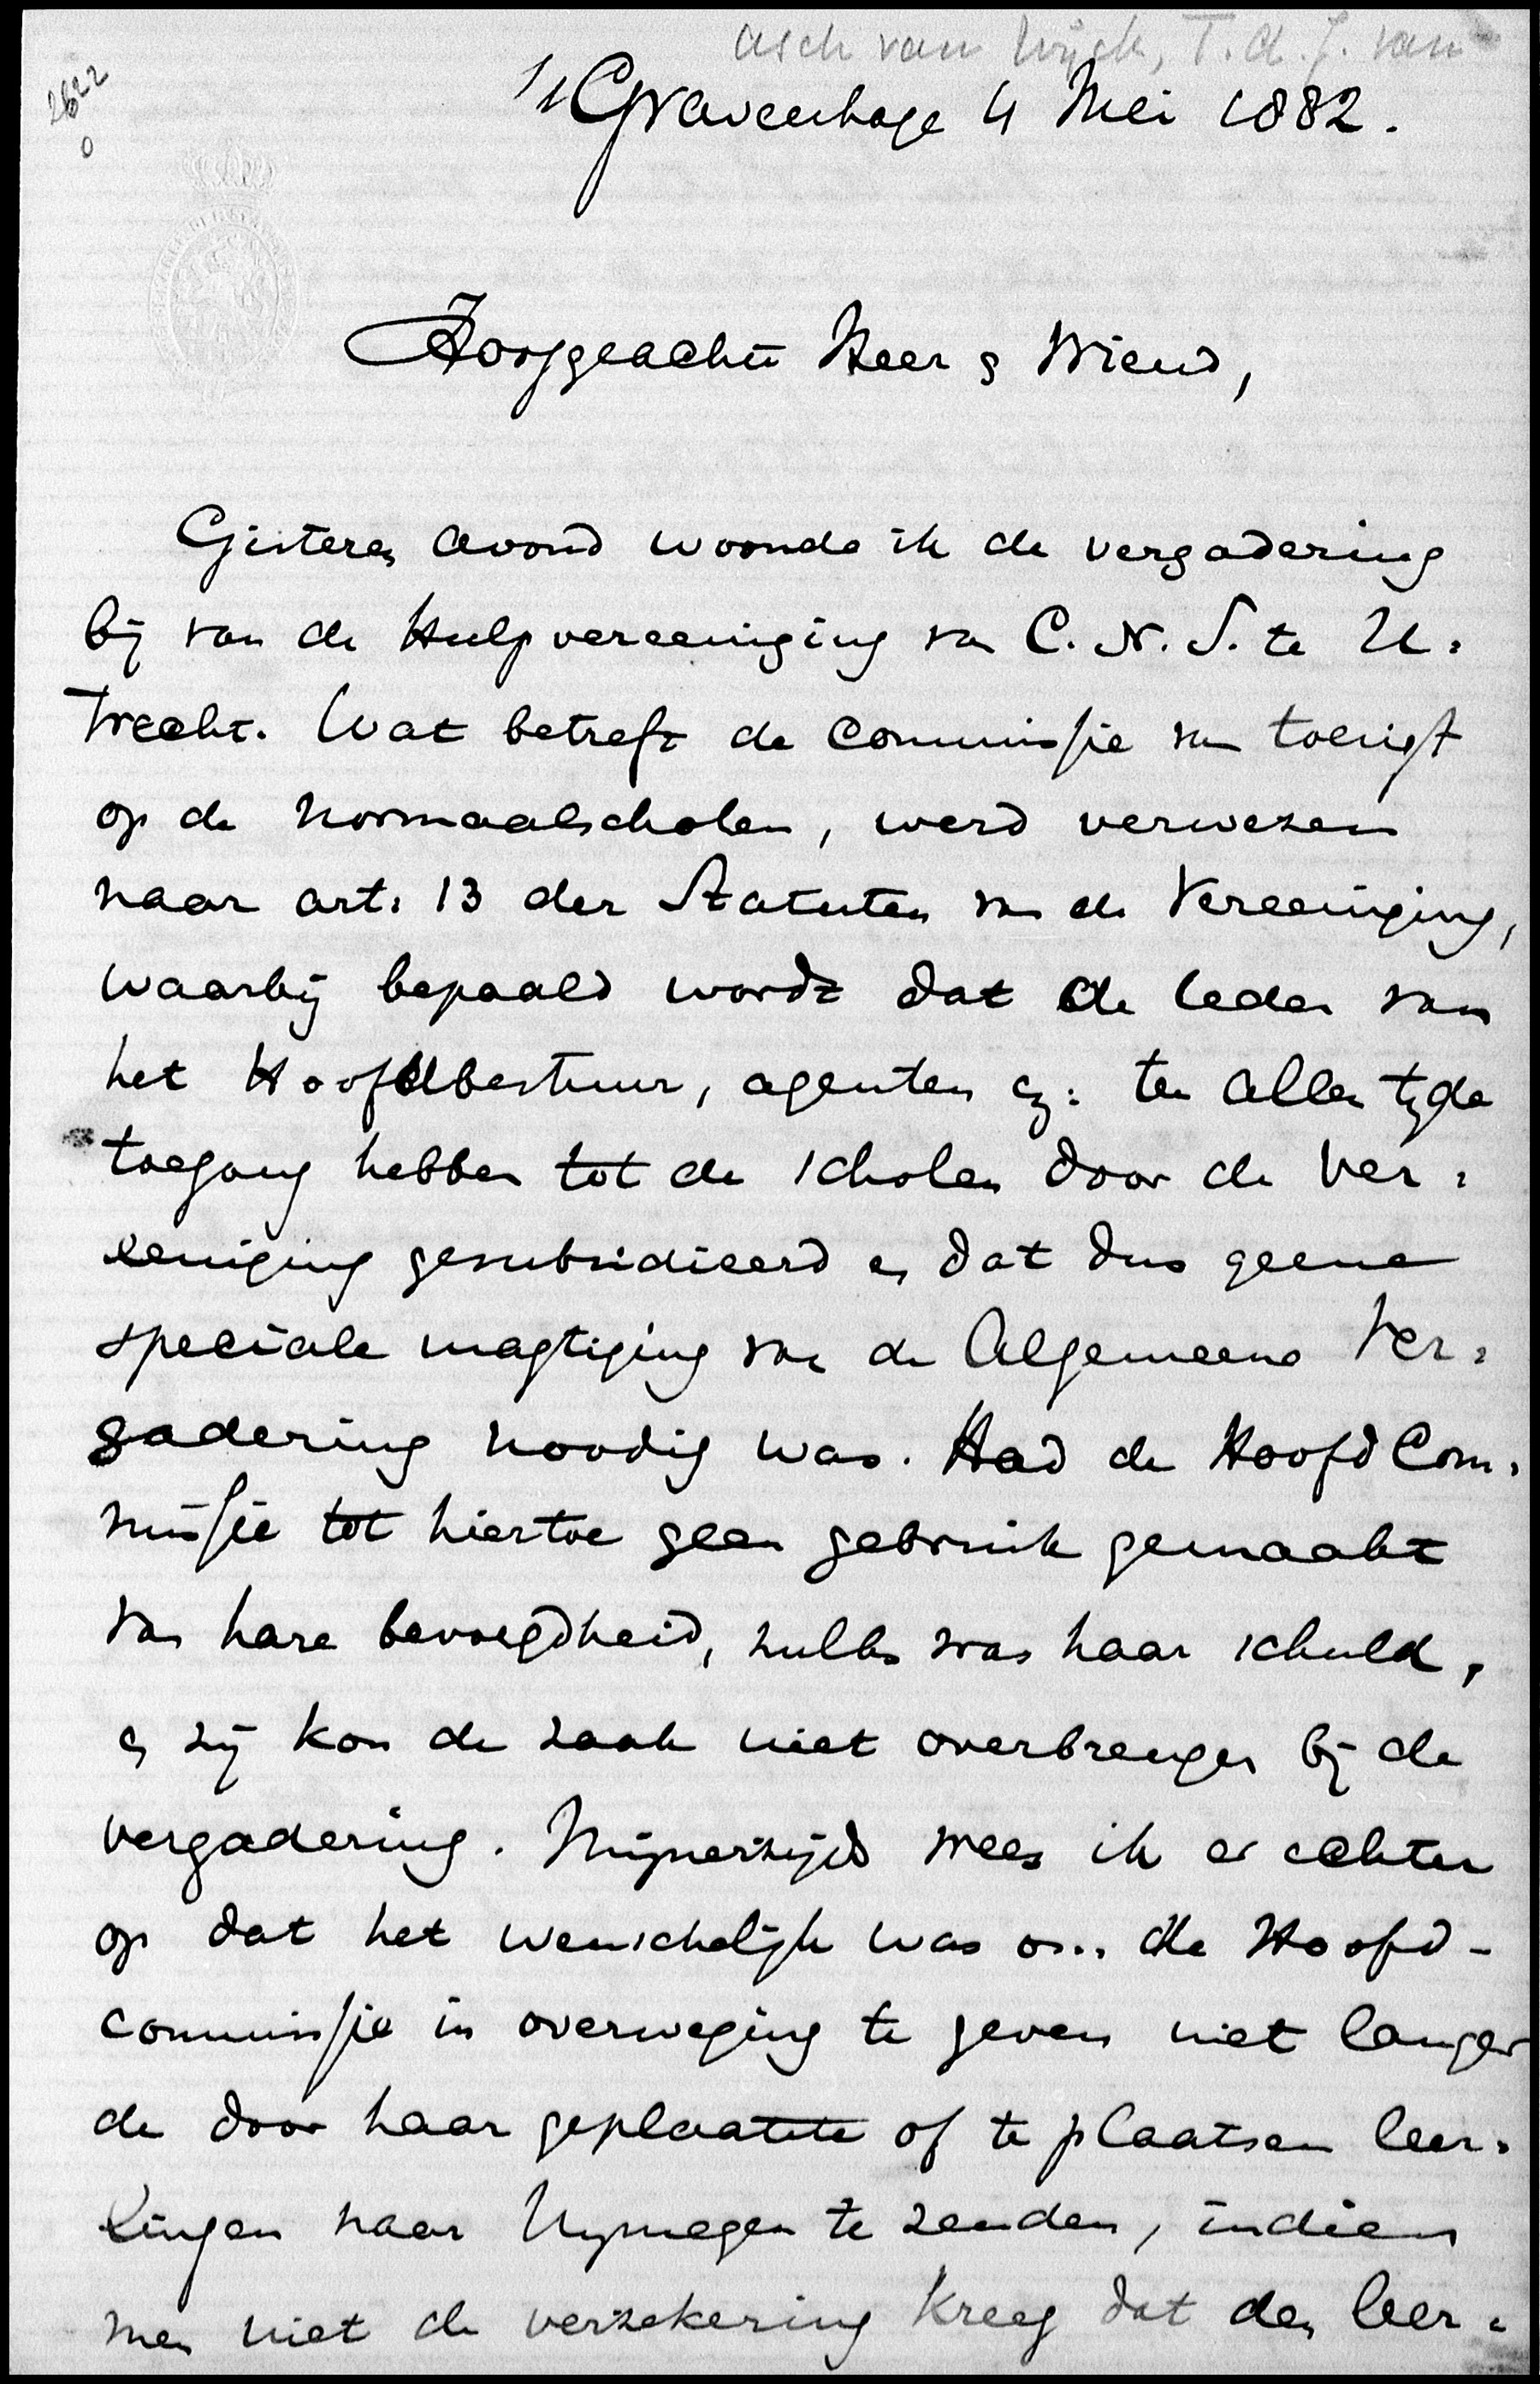 Asch van Wijck, T. A. J. van
2622
0
's Gravenhage 4 Mei 1882.
Hooggeachte Heer & Vriend,
Gisteren avond woonde ik de vergadering
bij van de Hulpvereeniging van C. N. S. te U:
trecht. Wat betreft de Commissie van toezigt
op de Normaalscholen, werd verwezen
naar art: 13 der Statuten van de Vereeniging,
waarbij bepaald wordt dat de leden van
het Hoofdbestuur, agenten enz: ten allen tijde
toegang hebben tot de scholen door de Ver:
eeniging gesubsidieerd en dat dus geene
speciale magtiging van de Algemeene Ver:
gadering noodig was. Had de HoofdCom:
missie tot hiertoe geen gebruik gemaakt
van hare bevoegdheid, zulks was haar schuld,
en zij kon de zaak niet overbrengen bij de
vergadering. Mijnerzijds wees ik er echter
op dat het wenschelijk was om de Hoofd-
commissie in overweging te geven niet langer
de door haar geplaatste of te plaatsen leer:
lingen naar Nijmegen te zenden, indien
men niet de verzekering kreeg dat den leer: